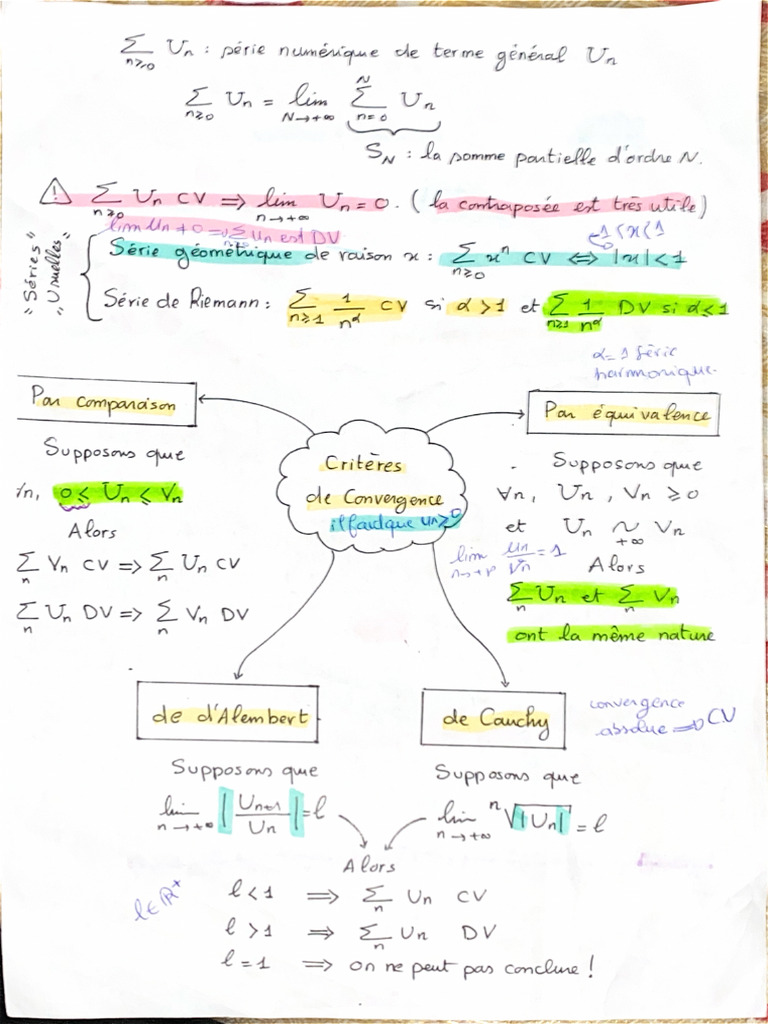 ∑_{n≥0} Un : série numérique de terme général Un
∑_{n≥0} Un = lim_{N→+∞} ∑_{n=0}^{N} Un
S_N : la somme partielle d'ordre N.
⚠ ∑_{n≥0} Un CV ⟹ lim_{n→+∞} Un = 0. (la contraposée est très utile)
lim Un ≠ 0 ⟹ ∑ Un est DV
-1 < x < 1
"Séries"
"Usuelles"
Série géométrique de raison x : ∑_{n≥0} xⁿ CV ⟺ |x| < 1
Série de Riemann : ∑_{n≥1} 1/n^α CV si α > 1 et ∑_{n≥1} 1/n^α DV si α ≤ 1
α = 1 Série
harmonique.
Par comparaison
Supposons que
∀n, 0 ≤ Un ≤ Vn
Alors
∑_n Vn CV => ∑_n Un CV
∑_n Un DV => ∑_n Vn DV
Critères
de Convergence
il faut que Un ≥ 0
Par équivalence
Supposons que
∀n, Un, Vn ≥ 0
et Un ~_{+∞} Vn
lim_{n→+∞} Un/Vn = 1
Alors
∑_n Un et ∑_n Vn
ont la même nature
de d'Alembert
Supposons que
lim_{n→+∞} |Un+1/Un| = l
de Cauchy
convergence
absolue ⟹ CV
Supposons que
lim_{n→+∞} ⁿ√|Un| = l
Alors
l ∈ ℝ⁺
l < 1 ⟹ ∑_n Un CV
l > 1 ⟹ ∑_n Un DV
l = 1 ⟹ on ne peut pas conclure !